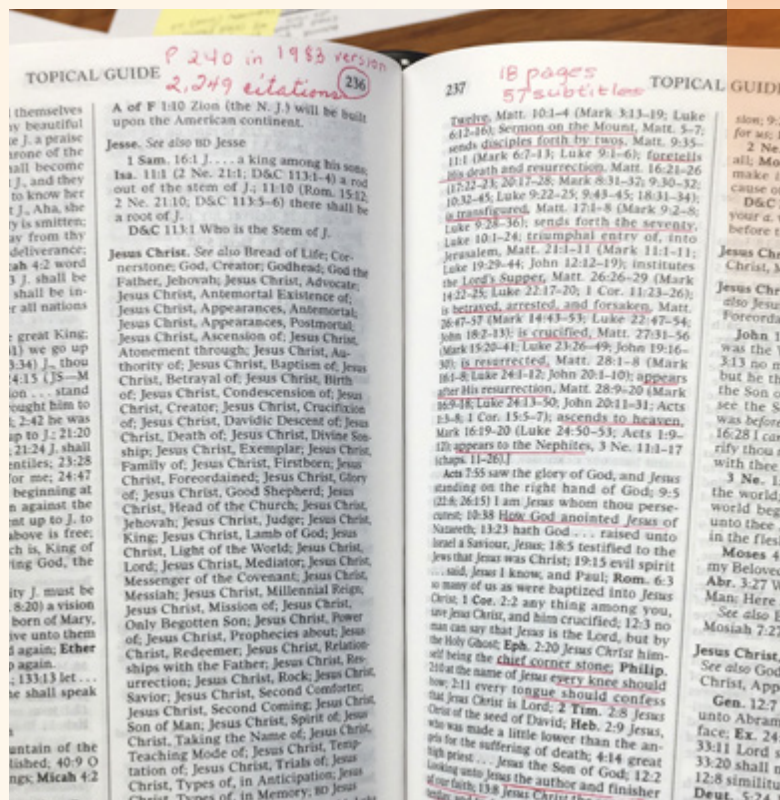 P 240 in 1983 version
2,249 citations
TOPICAL GUIDE
236
themselves
y beautiful
e J. a praise
rone of the
all become
J., and they
to know her
J., Aha, she
y is smitten;
ay from thy
deliverance;
ah 4:2 word
J. shall be
shall be in-
r all nations
great King;
we go up
3:34) J., thou
4:15 (JS—M
on . . . stand
ought him to
2:42 he was
up to J.; 21:20
21:24 J. shall
entiles; 23:28
or me; 24:47
beginning at
n against the
nt up to J. to
above is free;
ch is, King of
ing God, the
ity J. must be
8:20) a vision
born of Mary,
ve unto them
again; Ether
p again.
; 133:13 let . . .
e shall speak
untain of the
ed; 40:9 O
ngs; Micah 4:2
A of F 1:10 Zion (the N. J.) will be built
upon the American continent.
Jesse. See also BD Jesse
1 Sam. 16:1 J. . . . a king among his sons;
Isa. 11:1 (2 Ne. 21:1; D&C 113:1–4) a rod
out of the stem of J.; 11:10 (Rom. 15:12;
2 Ne. 21:10; D&C 113:5–6) there shall be
a root of J.
D&C 113:1 Who is the Stem of J.
Jesus Christ. See also Bread of Life; Cor-
nerstone; God, Creator; Godhead; God the
Father, Jehovah; Jesus Christ, Advocate;
Jesus Christ, Antemortal Existence of;
Jesus Christ, Appearances, Antemortal;
Jesus Christ, Appearances, Postmortal;
Jesus Christ, Ascension of; Jesus Christ,
Atonement through; Jesus Christ, Au-
thority of; Jesus Christ, Baptism of; Jesus
Christ, Betrayal of; Jesus Christ, Birth
of; Jesus Christ, Condescension of; Jesus
Christ, Creator; Jesus Christ, Crucifixion
of; Jesus Christ, Davidic Descent of; Jesus
Christ, Death of; Jesus Christ, Divine Son-
ship; Jesus Christ, Exemplar; Jesus Christ,
Family of; Jesus Christ, Firstborn; Jesus
Christ, Foreordained; Jesus Christ, Glory
of; Jesus Christ, Good Shepherd; Jesus
Christ, Head of the Church; Jesus Christ,
Jehovah; Jesus Christ, Judge; Jesus Christ,
King; Jesus Christ, Lamb of God; Jesus
Christ, Light of the World; Jesus Christ,
Lord; Jesus Christ, Mediator; Jesus Christ,
Messenger of the Covenant; Jesus Christ,
Messiah; Jesus Christ, Millennial Reign;
Jesus Christ, Mission of; Jesus Christ,
Only Begotten Son; Jesus Christ, Power
of; Jesus Christ, Prophecies about; Jesus
Christ, Redeemer; Jesus Christ, Relation-
ships with the Father; Jesus Christ, Res-
urrection; Jesus Christ, Rock; Jesus Christ,
Savior; Jesus Christ, Second Comforter;
Jesus Christ, Second Coming; Jesus Christ,
Son of Man; Jesus Christ, Spirit of; Jesus
Christ, Taking the Name of; Jesus Christ,
Teaching Mode of; Jesus Christ, Temp-
tation of; Jesus Christ, Trials of; Jesus
Christ, Types of, in Anticipation; Jesus
Christ, Types of, in Memory; BD Jesus
18 pages
57 subtitles
237
TOPICAL GUIDE
Twelve, Matt. 10:1–4 (Mark 3:13–19; Luke
6:12–16); Sermon on the Mount, Matt. 5–7;
sends disciples forth by twos, Matt. 9:35–
11:1 (Mark 6:7–13; Luke 9:1–6); foretells
His death and resurrection, Matt. 16:21–26
(17:22–23; 20:17–28; Mark 8:31–37; 9:30–32;
10:32–45; Luke 9:22–25; 9:43–45; 18:31–34);
is transfigured, Matt. 17:1–8 (Mark 9:2–8;
Luke 9:28–36); sends forth the seventy,
Luke 10:1–24; triumphal entry of, into
Jerusalem, Matt. 21:1–11 (Mark 11:1–11;
Luke 19:29–44; John 12:12–19); institutes
the Lord's Supper, Matt. 26:26–29 (Mark
14:22–25; Luke 22:17–20; 1 Cor. 11:23–26);
is betrayed, arrested, and forsaken, Matt.
26:47–57 (Mark 14:43–53; Luke 22:47–54;
John 18:2–13); is crucified, Matt. 27:31–56
(Mark 15:20–41; Luke 23:26–49; John 19:16–
30); is resurrected, Matt. 28:1–8 (Mark
16:1–8; Luke 24:1–12; John 20:1–10); appears
after His resurrection, Matt. 28:9–20 (Mark
16:9–18; Luke 24:13–50; John 20:11–31; Acts
1:3–8; 1 Cor. 15:5–7); ascends to heaven,
Mark 16:19–20 (Luke 24:50–53; Acts 1:9–
12); appears to the Nephites, 3 Ne. 11:1–17
(chaps. 11–26).]
Acts 7:55 saw the glory of God, and Jesus
standing on the right hand of God; 9:5
(22:8; 26:15) I am Jesus whom thou perse-
cutest; 10:38 How God anointed Jesus of
Nazareth; 13:23 hath God . . . raised unto
Israel a Saviour, Jesus; 18:5 testified to the
Jews that Jesus was Christ; 19:15 evil spirit
. . . said, Jesus I know, and Paul; Rom. 6:3
so many of us as were baptized into Jesus
Christ; 1 Cor. 2:2 any thing among you,
save Jesus Christ, and him crucified; 12:3 no
man can say that Jesus is the Lord, but by
the Holy Ghost; Eph. 2:20 Jesus Christ him-
self being the chief corner stone; Philip.
2:10 at the name of Jesus every knee should
bow; 2:11 every tongue should confess
that Jesus Christ is Lord; 2 Tim. 2:8 Jesus
Christ of the seed of David; Heb. 2:9 Jesus,
who was made a little lower than the an-
gels for the suffering of death; 4:14 great
high priest . . . Jesus the Son of God; 12:2
Looking unto Jesus the author and finisher
of our faith; 13:8 Jesus Christ the
sion; 9:
for us;
2 Ne.
all; Mo
make i
cause o
D&C
your a
before t
Jesus Ch
Christ, M
Jesus Chr
also Jesu
Foreorda
John 1
was the
3:13 no m
but he th
the Son o
see the S
was before
16:28 I can
rify thou
with thee
3 Ne. 1
the world
world beg
unto thee
in the fles
Moses 4
my Beloved
Abr. 3:27 W
Man: Here
See also B
Mosiah 7:2
Jesus Christ,
See also God
Christ, App
Gen. 12:7
unto Abram
face; Ex. 24
33:11 Lord
33:20 shall n
12:8 similit
Deut. 5:24